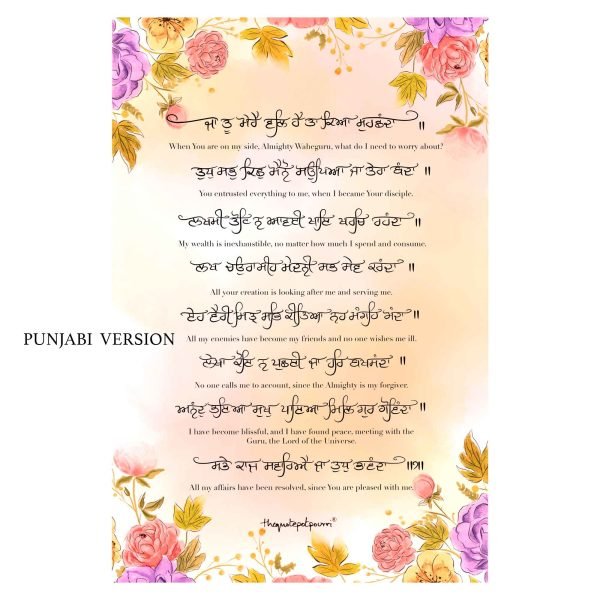 ਜਾ ਤੂ ਮੇਰੈ ਵਲਿ ਹੈ ਤਾ ਕਿਆ ਮੁਹਛੰਦਾ ॥
When You are on my side, Almighty Waheguru, what do I need to worry about?
ਤੁਧੁ ਸਭੁ ਕਿਛੁ ਮੈਨੋ ਸਉਪਿਆ ਜਾ ਤੇਰਾ ਬੰਦਾ ॥
You entrusted everything to me, when I became Your disciple.
ਲਖਮੀ ਤੋਟਿ ਨ ਆਵਈ ਖਾਇ ਖਰਚਿ ਰਹੰਦਾ ॥
My wealth is inexhaustible, no matter how much I spend and consume.
ਲਖ ਚਉਰਾਸੀਹ ਮੇਦਨੀ ਸਭ ਸੇਵ ਕਰੰਦਾ ॥
All your creation is looking after me and serving me.
ਏਹ ਵੈਰੀ ਮਿਤ੍ਰ ਸਭਿ ਕੀਤਿਆ ਨਹ ਮੰਗਹਿ ਮੰਦਾ ॥
PUNJABI VERSION
All my enemies have become my friends and no one wishes me ill.
ਲੇਖਾ ਕੋਇ ਨ ਪੁਛਈ ਜਾ ਹਰਿ ਬਖਸੰਦਾ ॥
No one calls me to account, since the Almighty is my forgiver.
ਅਨੰਦੁ ਭਇਆ ਸੁਖੁ ਪਾਇਆ ਮਿਲਿ ਗੁਰ ਗੋਵਿੰਦਾ ॥
I have become blissful, and I have found peace, meeting with the
Guru, the Lord of the Universe.
ਸਭੇ ਕਾਜ ਸਵਾਰਿਐ ਜਾ ਤੁਧੁ ਭਾਵੰਦਾ ॥੭॥
All my affairs have been resolved, since You are pleased with me.
thequotepotpourri®